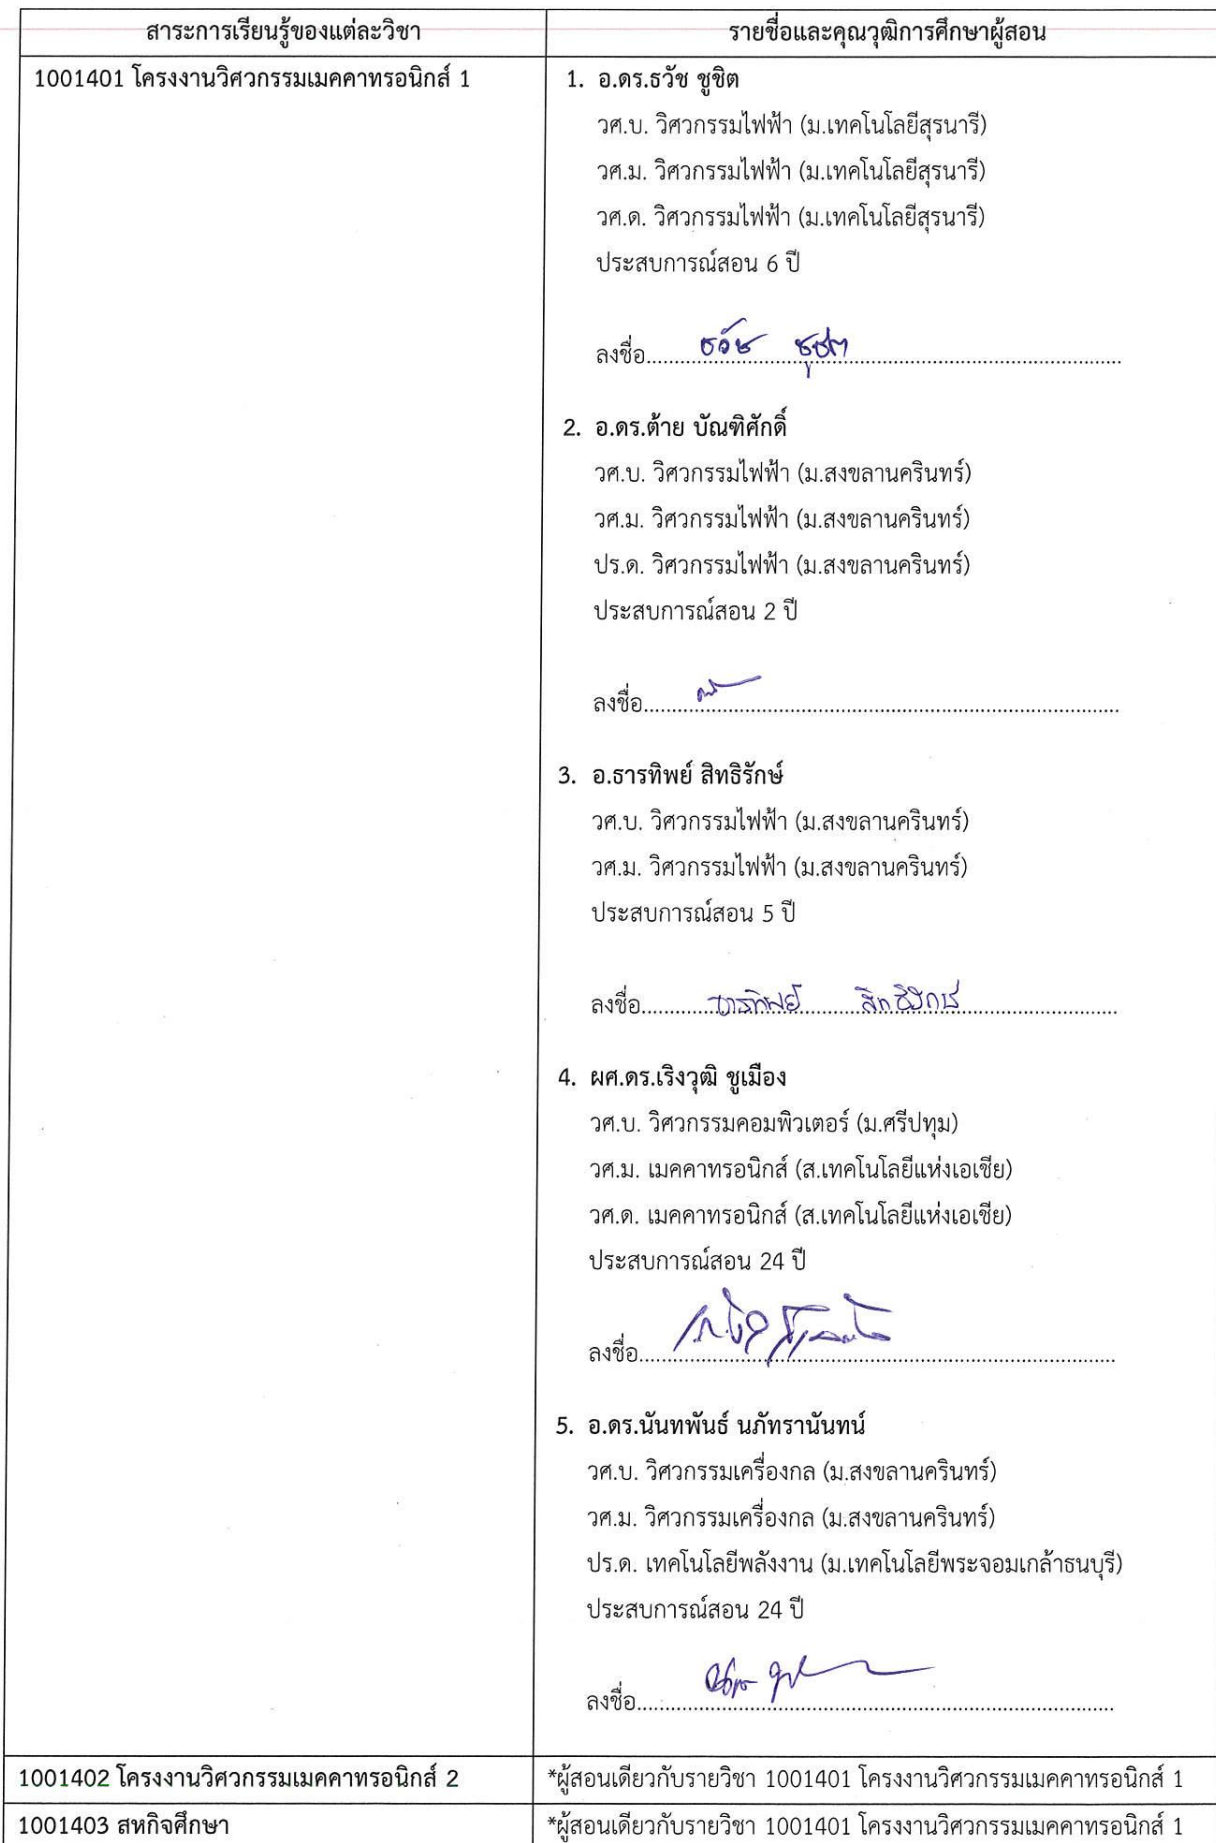 สาระการเรียนรู้ของแต่ละวิชา
รายชื่อและคุณวุฒิการศึกษาผู้สอน
1001401 โครงงานวิศวกรรมเมคคาทรอนิกส์ 1
1. อ.ดร.ธวัช ชูชิต
วศ.บ. วิศวกรรมไฟฟ้า (ม.เทคโนโลยีสุรนารี)
วศ.ม. วิศวกรรมไฟฟ้า (ม.เทคโนโลยีสุรนารี)
วศ.ด. วิศวกรรมไฟฟ้า (ม.เทคโนโลยีสุรนารี)
ประสบการณ์สอน 6 ปี
ลงชื่อ ธวัช ชูชิต
2. อ.ดร.ต้าย บัณฑิศักดิ์
วศ.บ. วิศวกรรมไฟฟ้า (ม.สงขลานครินทร์)
วศ.ม. วิศวกรรมไฟฟ้า (ม.สงขลานครินทร์)
ปร.ด. วิศวกรรมไฟฟ้า (ม.สงขลานครินทร์)
ประสบการณ์สอน 2 ปี
ลงชื่อ
3. อ.ธารทิพย์ สิทธิรักษ์
วศ.บ. วิศวกรรมไฟฟ้า (ม.สงขลานครินทร์)
วศ.ม. วิศวกรรมไฟฟ้า (ม.สงขลานครินทร์)
ประสบการณ์สอน 5 ปี
ลงชื่อ ธารทิพย์ สิทธิรักษ์
4. ผศ.ดร.เริงวุฒิ ชูเมือง
วศ.บ. วิศวกรรมคอมพิวเตอร์ (ม.ศรีปทุม)
วศ.ม. เมคคาทรอนิกส์ (ส.เทคโนโลยีแห่งเอเชีย)
วศ.ด. เมคคาทรอนิกส์ (ส.เทคโนโลยีแห่งเอเชีย)
ประสบการณ์สอน 24 ปี
ลงชื่อ
5. อ.ดร.นันทพันธ์ นภัทรานันทน์
วศ.บ. วิศวกรรมเครื่องกล (ม.สงขลานครินทร์)
วศ.ม. วิศวกรรมเครื่องกล (ม.สงขลานครินทร์)
ปร.ด. เทคโนโลยีพลังงาน (ม.เทคโนโลยีพระจอมเกล้าธนบุรี)
ประสบการณ์สอน 24 ปี
ลงชื่อ
1001402 โครงงานวิศวกรรมเมคคาทรอนิกส์ 2
*ผู้สอนเดียวกับรายวิชา 1001401 โครงงานวิศวกรรมเมคคาทรอนิกส์ 1
1001403 สหกิจศึกษา
*ผู้สอนเดียวกับรายวิชา 1001401 โครงงานวิศวกรรมเมคคาทรอนิกส์ 1